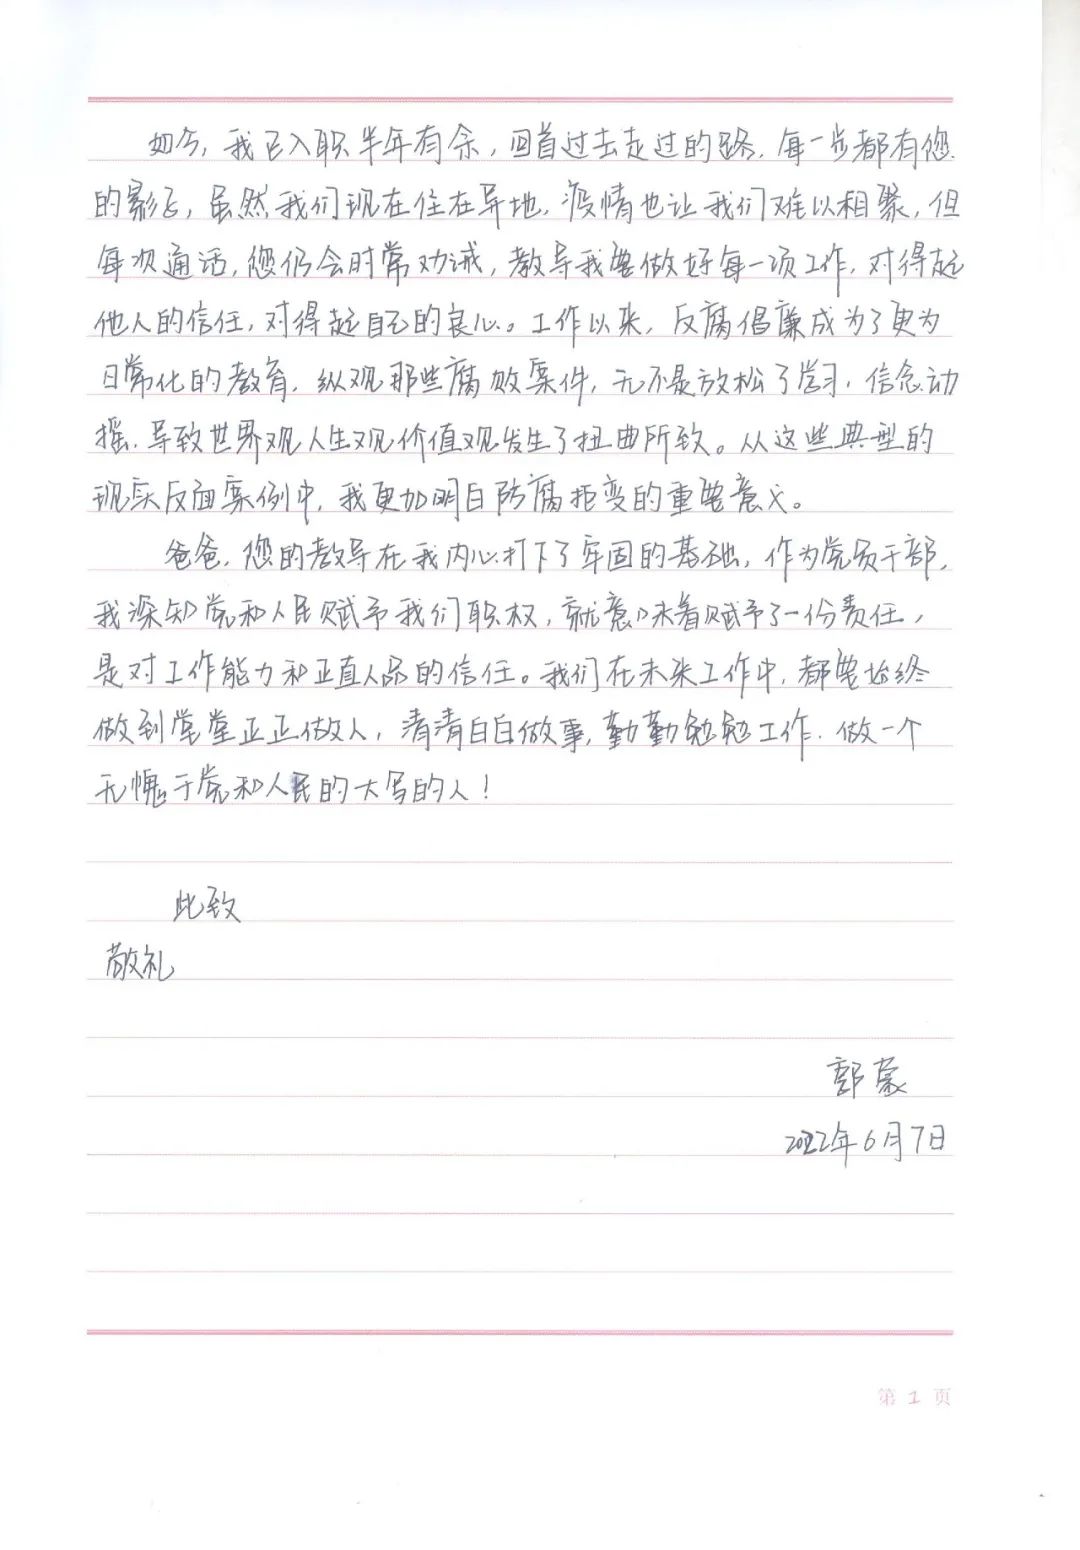 如今，我已入职半年有余，回首过去走过的路，每一步都有您
的影子，虽然我们现在住在异地，疫情也让我们难以相聚，但
每次通话，您仍会时常劝诫，教导我要做好每一项工作，对得起
他人的信任，对得起自己的良心。工作以来，反腐倡廉成为了更为
日常化的教育，纵观那些腐败案件，无不是放松了学习，信念动
摇，导致世界观人生观价值观发生了扭曲所致。从这些典型的
现实反面案例中，我更加明白防腐拒变的重要意义。
爸爸，您的教导在我内心打下了牢固的基础，作为党员干部，
我深知党和人民赋予我们职权，就意味着赋予了一份责任，
是对工作能力和正直人品的信任。我们在未来工作中，都要始终
做到堂堂正正做人，清清白白做事，勤勤勉勉工作，做一个
无愧于党和人民的大写的人！
此致
敬礼
蒙
2022年6月7日
第1页